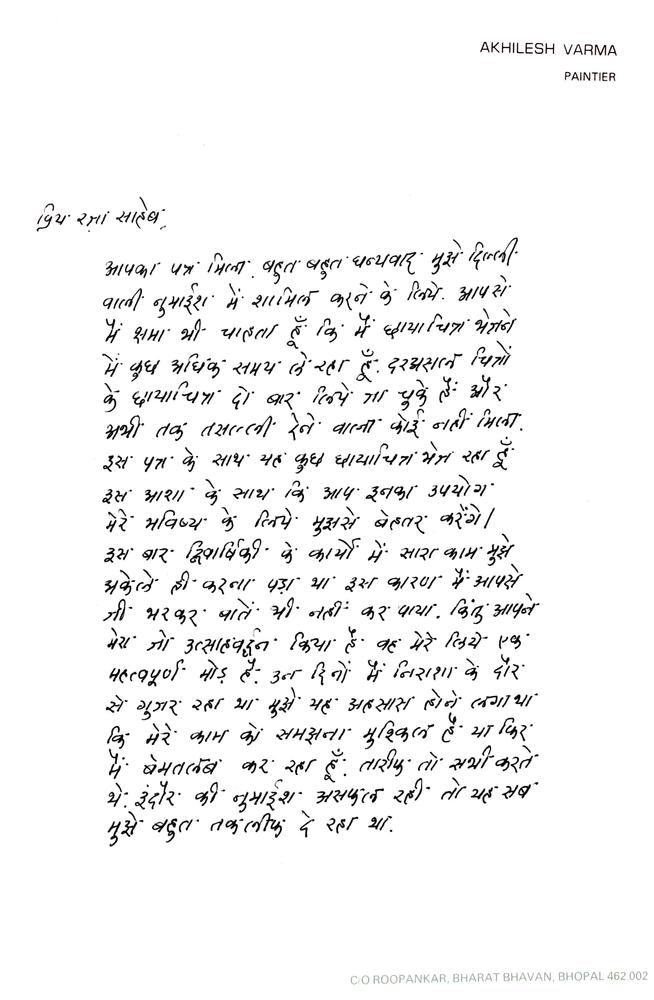 AKHILESH VARMA
PAINTIER
प्रिय रज़ा साहेब,
आपका पत्र मिला. बहुत बहुत धन्यवाद मुझे दिल्ली
वाली नुमाईश में शामिल करने के लिये. आपसे
मैं क्षमा भी चाहता हूँ कि मैं छायाचित्र भेजने
में कुछ अधिक समय ले रहा हूँ. दरअसल चित्रों
के छायाचित्र दो बार लिये जा चुके हैं और
अभी तक तसल्ली देने वाला कोई नहीं मिला.
इस पत्र के साथ यह कुछ छायाचित्र भेज रहा हूँ
इस आशा के साथ कि आप इनका उपयोग
मेरे भविष्य के लिये मुझसे बेहतर करेंगे।
इस बार द्विवार्षिकी के कार्यों में सारा काम मुझे
अकेले ही करना पड़ा था इस कारण मैं आपसे
जी भरकर बातें भी नहीं कर पाया. किंतु आपने
मेरा जो उत्साहवर्द्धन किया है वह मेरे लिये एक
महत्वपूर्ण मोड़ है. उन दिनों मैं निराशा के दौर
से गुज़र रहा था मुझे यह अहसास होने लगा था
कि मेरे काम को समझना मुश्किल है या फिर
मैं बेमतलब कर रहा हूँ. तारीफ़ तो सभी करते
थे. इंदौर की नुमाईश असफल रही तो यह सब
मुझे बहुत तकलीफ़ दे रहा था.
C/O ROOPANKAR, BHARAT BHAVAN, BHOPAL 462 002